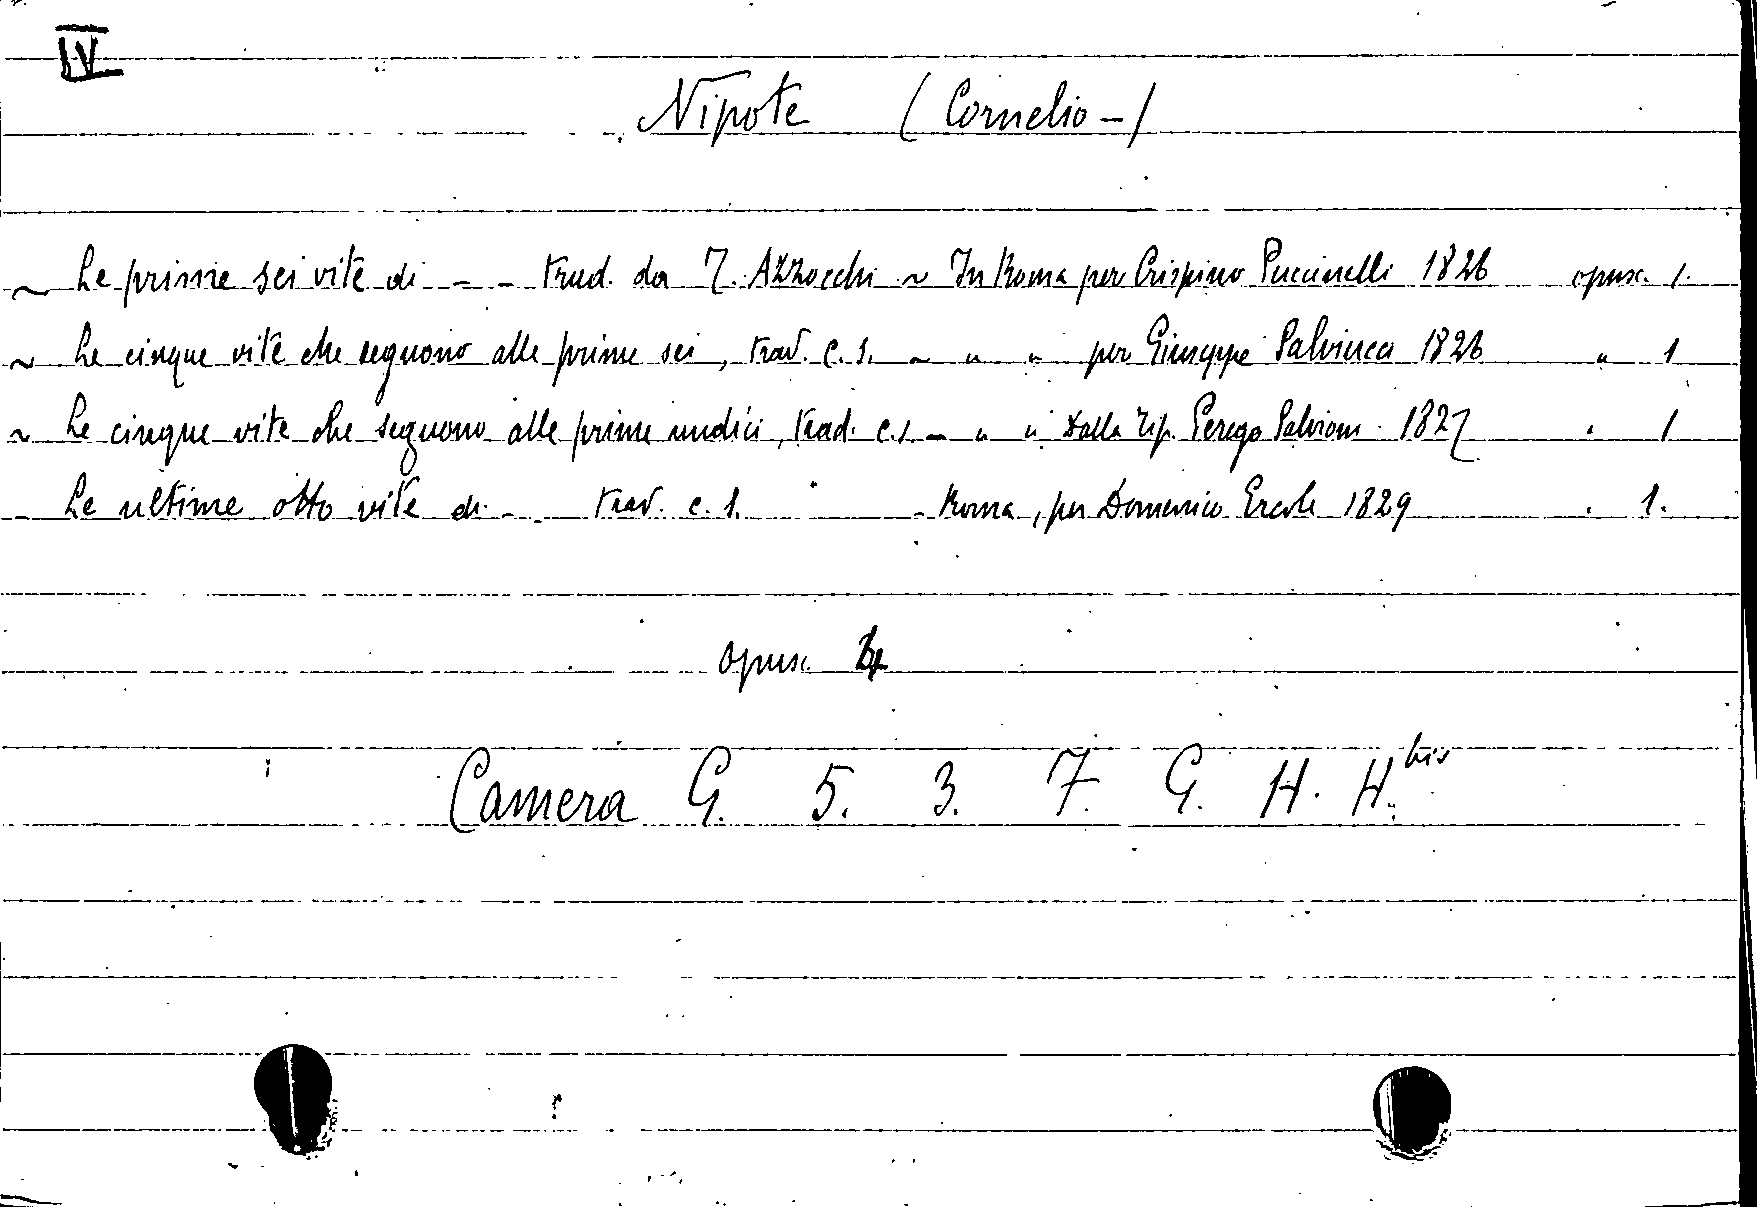 IV
Nipote (Cornelio -)
~ Le prime sei vite di - - trad. da T. Azzocchi ~ In Roma per Crispino Puccinelli 1826 opusc. 1.
~ Le cinque vite che seguono alle prime sei, trad. c. s. ~ " " per Giuseppe Salviucci 1826 " 1
~ Le cinque vite che seguono alle prime undici, trad. c. s. - " " Dalla Tip. Perego Salvioni 1827 " 1
- Le ultime otto vite di - trad. c. s. - Roma, per Domenico Ercole 1829 " 1.
opusc. 4
Camera G. 5. 3. 7. G. H. H. bis